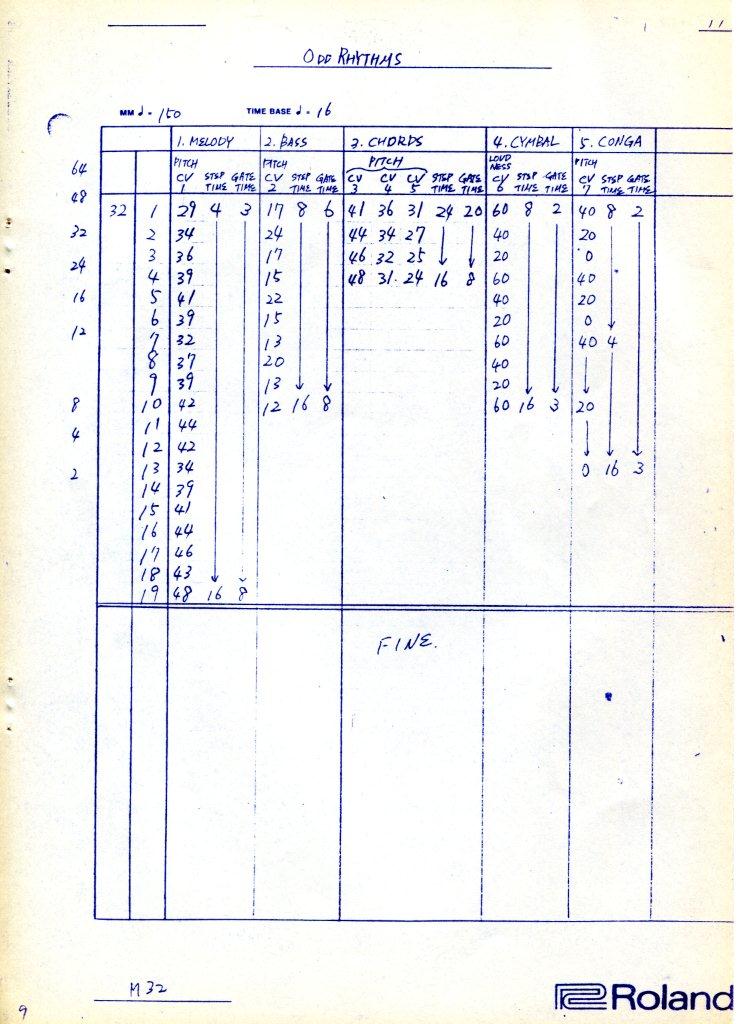 11
ODD RHYTHMS
MM ♩= 150 TIME BASE ♩= 16
1. MELODY 2. BASS 3. CHORDS 4. CYMBAL 5. CONGA
64 PITCH PITCH PITCH LOUDNESS PITCH
CV 1 STEP TIME GATE TIME CV 2 STEP TIME GATE TIME CV 3 CV 4 CV 5 STEP TIME GATE TIME CV 6 STEP TIME GATE TIME CV 7 STEP TIME GATE TIME
48
32 1 29 4 3 17 8 6 41 36 31 24 20 60 8 2 40 8 2
32 2 34 24 44 34 27 40 20
24 3 36 17 46 32 25 20 0
4 39 15 48 31 24 16 8 60 40
16 5 41 22 40 20
6 39 15 20 0
12 7 32 13 60 40 4
8 37 20 40
9 39 13 20
8 10 42 12 16 8 60 16 3 20
4 11 44
12 42
2 13 34 0 16 3
14 39
15 41
16 44
17 46
18 43
19 48 16 8
FINE.
M32
Roland
9